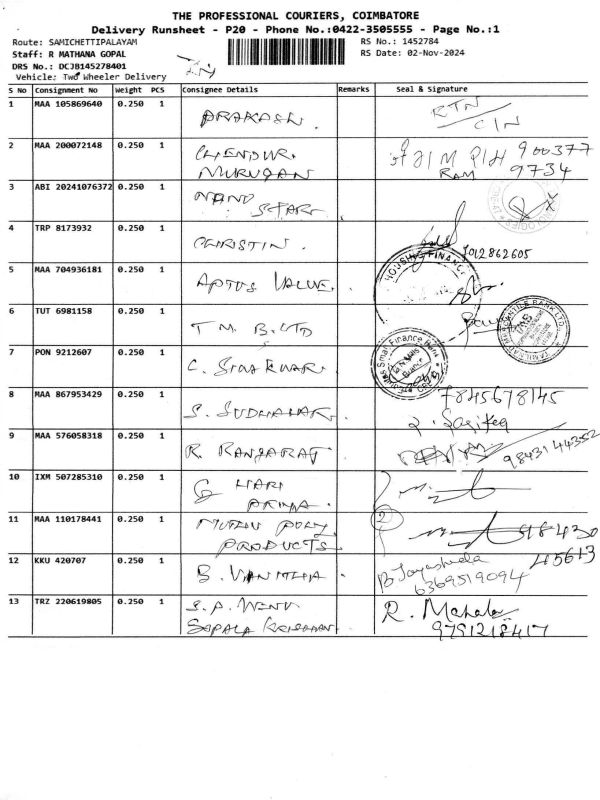 THE PROFESSIONAL COURIERS, COIMBATORE
Delivery Runsheet - P20 - Phone No.:0422-3505555 - Page No.:1
Route: SAMICHETTIPALAYAM
RS No.: 1452784
Staff: R MATHANA GOPAL
RS Date: 02-Nov-2024
DRS No.: DCJB145278401
Vehicle: Two Wheeler Delivery
S No Consignment No Weight PCS Consignee Details Remarks Seal & Signature
1 MAA 105869640 0.250 1 PRAKASH. RTN
C/N
2 MAA 200072148 0.250 1 CHENDUR 900377
MURUGAN RAM 9734
3 ABI 20241076372 0.250 1 NAND
STAR
4 TRP 8173932 0.250 1 CHRISTIN. 7012862605
HOUSING FINANCE
5 MAA 704936181 0.250 1 APTUS VALUE.
6 TUT 6981158 0.250 1 T.M.B.LTD
TAMILNAD MERCANTILE BANK LTD.
7 PON 9212607 0.250 1 C. SIVAKUMAR
Small Finance Bank
8 MAA 867953429 0.250 1 S. SUDHAKAR 7845678145
9 MAA 576058318 0.250 1 R. RANGARAJ 9843144352
10 IXM 507285310 0.250 1 G HARI
PRIYA.
11 MAA 110178441 0.250 1 MUTHU POLY 2
PRODUCTS 98430
45613
12 KKU 420707 0.250 1 B. VANITHA B. Jayashuda
6369519094
13 TRZ 220619805 0.250 1 S.P. VENU R. Mahala
GOPALA KRISHNAN. 9791218417